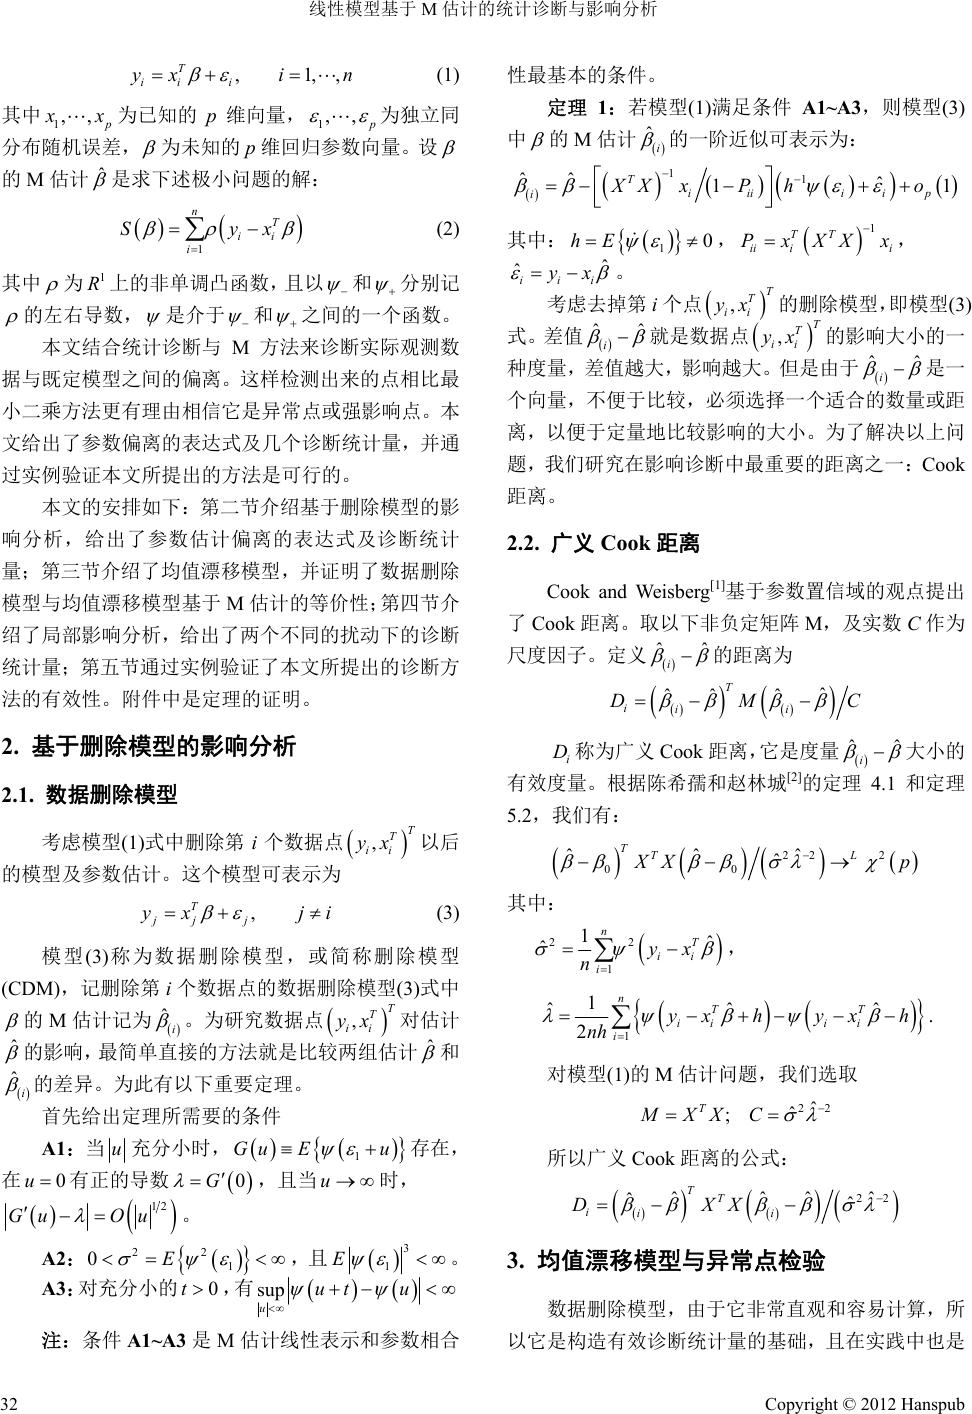 线性模型基于 M 估计的统计诊断与影响分析
y_i = x_i^T β + ε_i , i = 1, ⋯, n (1)
其中 x_1, ⋯, x_p 为已知的 p 维向量，ε_1, ⋯, ε_p 为独立同
分布随机误差，β 为未知的 p 维回归参数向量。设 β
的 M 估计 β̂ 是求下述极小问题的解：
S(β) = ∑_{i=1}^n ρ(y_i − x_i^T β) (2)
其中 ρ 为 R^1 上的非单调凸函数，且以 ψ_− 和 ψ_+ 分别记
ρ 的左右导数，ψ 是介于 ψ_− 和 ψ_+ 之间的一个函数。
本文结合统计诊断与 M 方法来诊断实际观测数
据与既定模型之间的偏离。这样检测出来的点相比最
小二乘方法更有理由相信它是异常点或强影响点。本
文给出了参数偏离的表达式及几个诊断统计量，并通
过实例验证本文所提出的方法是可行的。
本文的安排如下：第二节介绍基于删除模型的影
响分析，给出了参数估计偏离的表达式及诊断统计
量；第三节介绍了均值漂移模型，并证明了数据删除
模型与均值漂移模型基于 M 估计的等价性；第四节介
绍了局部影响分析，给出了两个不同的扰动下的诊断
统计量；第五节通过实例验证了本文所提出的诊断方
法的有效性。附件中是定理的证明。
2. 基于删除模型的影响分析
2.1. 数据删除模型
考虑模型(1)式中删除第 i 个数据点 (y_i, x_i^T)^T 以后
的模型及参数估计。这个模型可表示为
y_j = x_j^T β + ε_j , j ≠ i (3)
模型(3)称为数据删除模型，或简称删除模型
(CDM)，记删除第 i 个数据点的数据删除模型(3)式中
β 的 M 估计记为 β̂_(i)。为研究数据点 (y_i, x_i^T)^T 对估计
β̂ 的影响，最简单直接的方法就是比较两组估计 β̂ 和
β̂_(i) 的差异。为此有以下重要定理。
首先给出定理所需要的条件
A1：当 |u| 充分小时，G(u) ≡ E{ψ(ε_1 + u)} 存在，
在 u = 0 有正的导数 λ = G′(0)，且当 u → ∞ 时，
G′(u) − λ = O(|u|^{1/2})。
A2：0 < σ^2 = E{ψ^2(ε_1)} < ∞，且 E|ψ(ε_1)|^3 < ∞。
A3：对充分小的 t > 0，有 sup_{|u|<∞} |ψ(u + t) − ψ(u)| < ∞
注：条件 A1~A3 是 M 估计线性表示和参数相合
性最基本的条件。
定理 1：若模型(1)满足条件 A1~A3，则模型(3)
中 β 的 M 估计 β̂_(i) 的一阶近似可表示为：
β̂_(i) = β̂ − [(X^T X)^{−1} x_i /(1 − P_ii)] h^{−1} ψ(ε_i + ε̂_i) + o_p(1)
其中：h = E{ψ̇(ε_1)} ≠ 0，P_ii = x_i^T (X^T X)^{−1} x_i，
ε̂_i = y_i − x_i β̂。
考虑去掉第 i 个点 (y_i, x_i^T)^T 的删除模型，即模型(3)
式。差值 β̂_(i) − β̂ 就是数据点 (y_i, x_i^T)^T 的影响大小的一
种度量，差值越大，影响越大。但是由于 β̂_(i) − β̂ 是一
个向量，不便于比较，必须选择一个适合的数量或距
离，以便于定量地比较影响的大小。为了解决以上问
题，我们研究在影响诊断中最重要的距离之一：Cook
距离。
2.2. 广义 Cook 距离
Cook and Weisberg[1]基于参数置信域的观点提出
了 Cook 距离。取以下非负定矩阵 M，及实数 C 作为
尺度因子。定义 β̂_(i) − β̂ 的距离为
D_i = (β̂_(i) − β̂)^T M (β̂_(i) − β̂)/C
D_i 称为广义 Cook 距离，它是度量 β̂_(i) − β̂ 大小的
有效度量。根据陈希孺和赵林城[2]的定理 4.1 和定理
5.2，我们有：
(β̂ − β_0)^T X^T X (β̂ − β_0)/σ̂^2 λ̂^{−2} →^L χ^2(p)
其中：
σ̂^2 = 1/n ∑_{i=1}^n ψ^2(y_i − x_i^T β̂)，
λ̂ = 1/(2nh) ∑_{i=1}^n {ψ(y_i − x_i^T β̂ + h) − ψ(y_i − x_i^T β̂ − h)}.
对模型(1)的 M 估计问题，我们选取
M = X^T X; C = σ̂^2 λ̂^{−2}
所以广义 Cook 距离的公式：
D_i = (β̂_(i) − β̂)^T X^T X (β̂_(i) − β̂)/(σ̂^2 λ̂^{−2})
3. 均值漂移模型与异常点检验
数据删除模型，由于它非常直观和容易计算，所
以它是构造有效诊断统计量的基础，且在实践中也是
32 Copyright © 2012 Hanspub